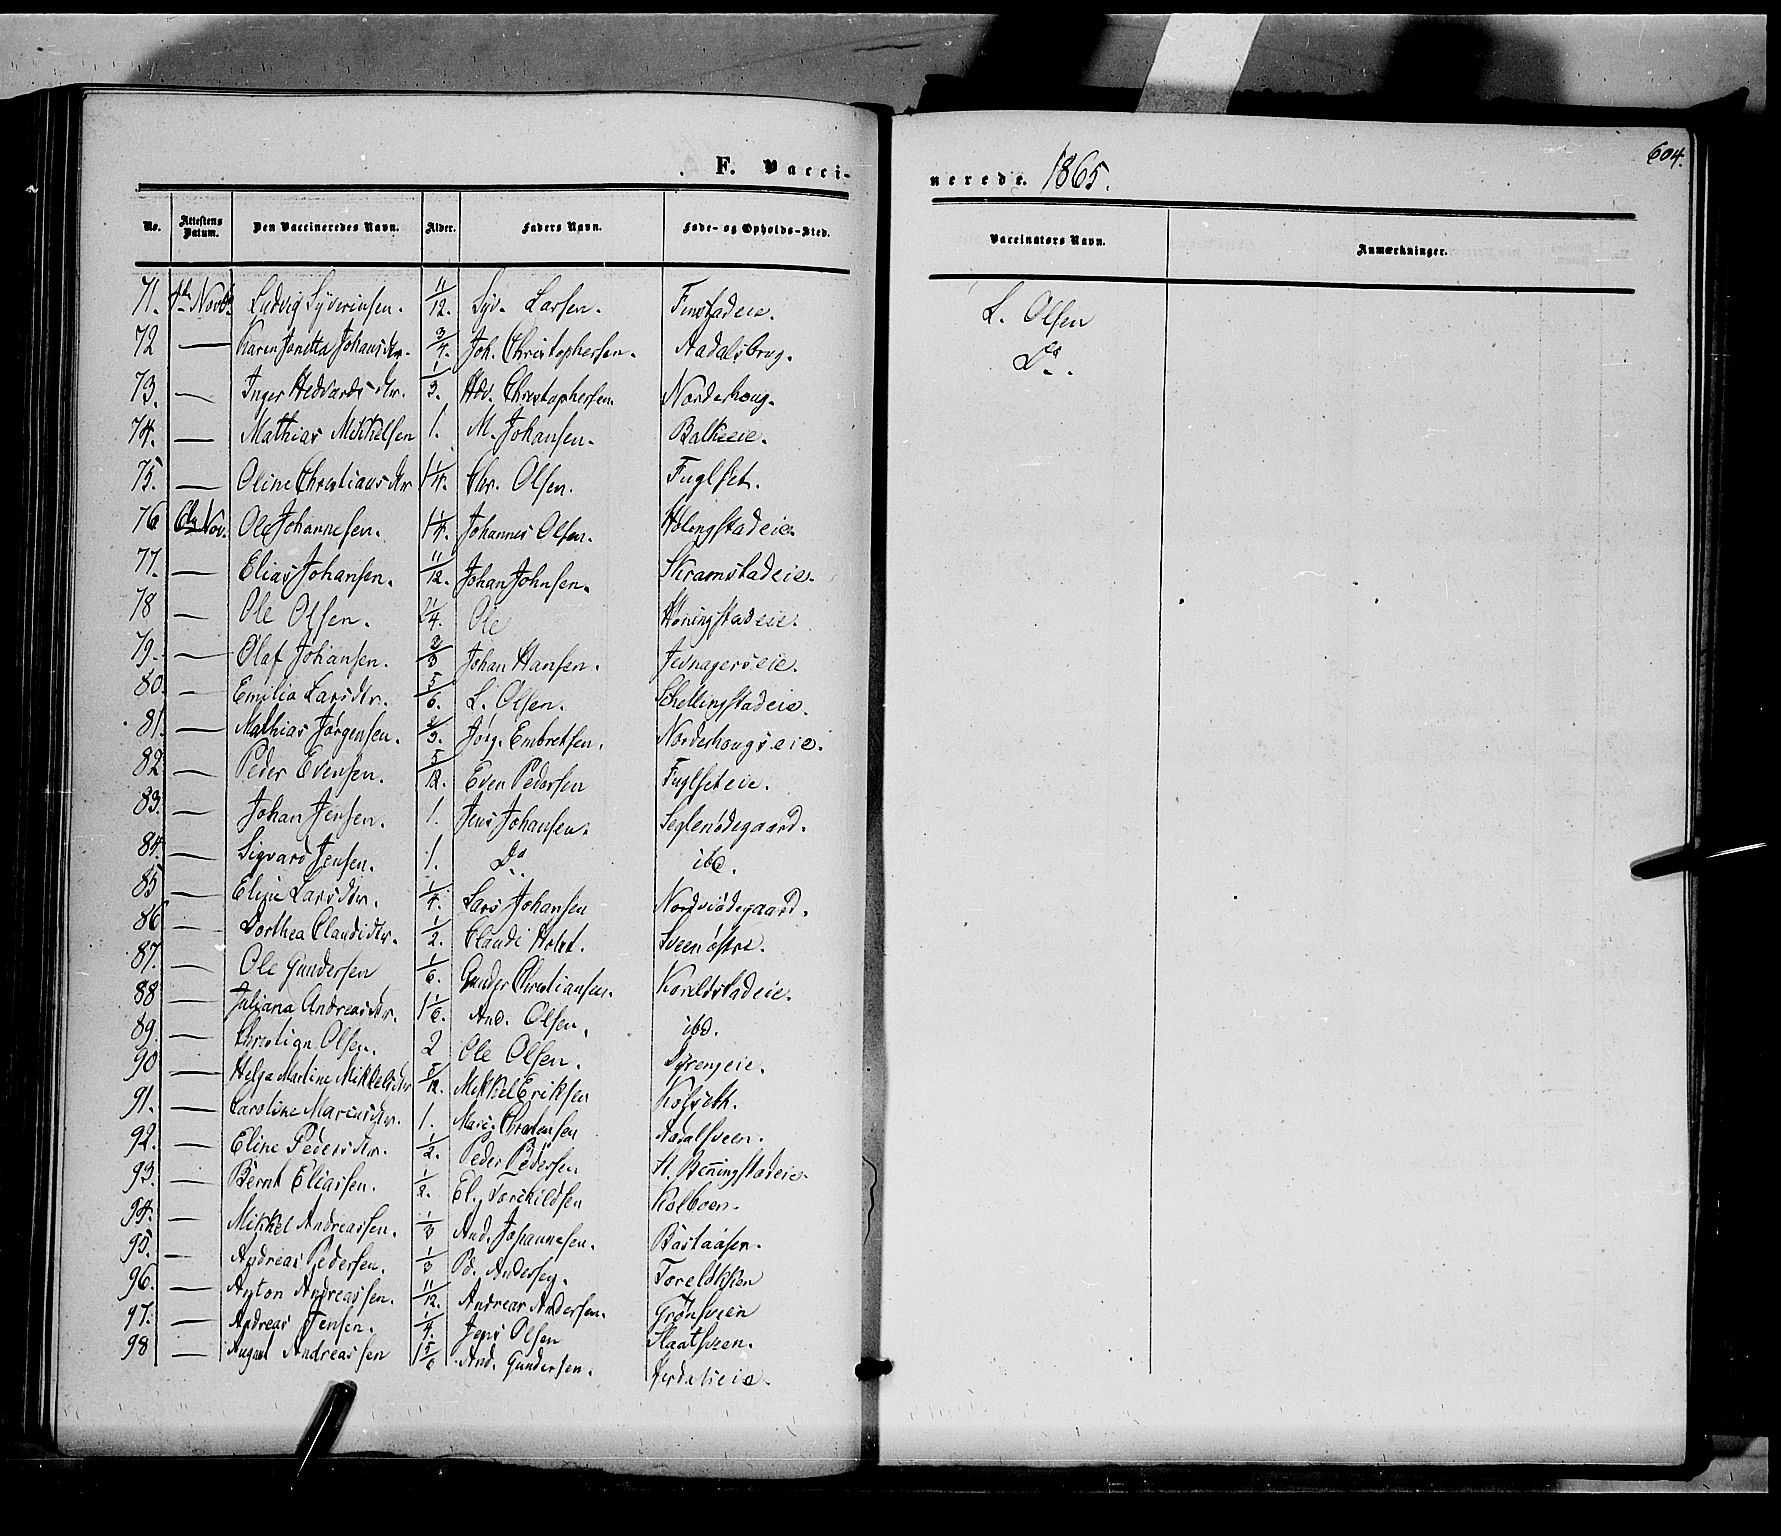 F. Vaccinerede. 1865.
604.
No. Attestens Datum. Den Vaccineredes Navn. Alder. Faders Navn. Føde- og Opholds-Sted. Vaccinators Navn. Anmærkninger.
71. Novbr Ludvig Syverinsen. 11/12. Syv. Larsen. Finstadeie. L. Olsen
72 — Karen Janetta Johansdtr. 3/4. Joh. Christophersen. Aadalsbrug. Do.
73. — Inger Hedvardsdtr. 1/3. Hdv. Christophersen. Norderhoug.
74. — Mathias Mikkelsen 1. M. Johansen. Balkeeie.
75. — Oline Christiansdtr 1 1/4. Chr. Olsen. Fuglset.
76 Nov. Ole Johannesen. 1 1/4. Johannes Olsen. Holingstadeie.
77. — Elias Johansen. 11/12. Johan Johnsen. Skramstadeie.
78 — Ole Olsen. 1/4. Ole Honingstadeie.
79. — Olaf Johansen. 2/3 Johan Hansen. Jevnagerseie.
80. — Emilia Larsdtr. 5/6. L. Olsen. Schellingstadeie.
81. — Mathias Jørgensen. 2/3. Jørg. Embretsen. Norderhougseie.
82. — Peder Evensen. 5/12. Even Pedersen Fuglseteie.
83. — Johan Jensen. 1. Jens Johansen. Seglenødegaard.
84. — Sigvard Jensen. 1. Do ibd.
85 — Eline Larsdtr. 1/4. Lars Johansen Nordviødegaard.
86 — Dorthea Claudidtr. 1/2. Claudi Holst. Sveen østre.
87. — Ole Gundersen 1/6. Gunder Christiansen. Koreldstadeie.
88 — Juliana Andreasdtr. 1 1/6. And. Olsen. ibd.
89. — Christian Olsen. 2 Ole Olsen. Dyreneie.
90 — Helga Martine Mikkelsdtr 5/12. Mikkel Eriksen Kolseth.
91. — Caroline Mariusdtr. 1. Marius Christensen Aadalsveen.
92. — Eline Pedersdtr. 1/2. Peder Pedersen St. Beningstadeie.
93. — Bernt Eliassen. 1/2. El. Torchildsen Kolboen.
94. — Mikkel Andreassen. 1/3 And. Johannesen. Bastaasen.
95. — Andreas Pedersen. 1/3 Pd. Andersen. Toreldkken
96. — Anton Andreassen. 11/12. Andreas Andersen. Grønsveen
97. — Andreas Jensen. 1/4. Jens Olsen Slaatsveen.
98 — August Andreassen 1 5/6 And. Gundersen. Herdalseie.